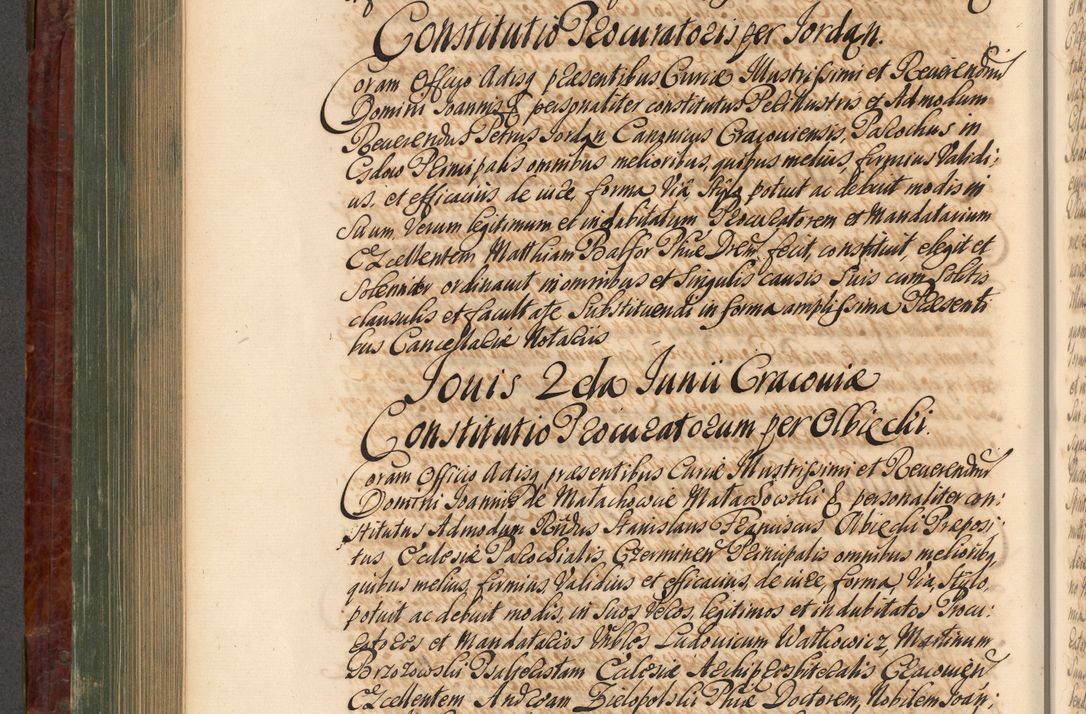 Constitutio Procuratoris per Jordan.
Coram Officio Actisq præsentibus Curiæ Illustrissimi et Reuerendmi
Domini Joannis & personaliter constitutus Perillustris et Admodum
Reuerendus Petrus Jordan Canonicus Cracouiensis, Parochus in
Principalis omnibus melioribus, quibus melius, firmius Validi:
us, et efficacius de iure, forma Via Stylo potuit ac debuit modis in
Suum Verum legitimum et indubitatum Procuratorem et Mandatarium
Excellentem Matthiam Balfor Phiæ Drem fecit, constituit, elegit et
Solenniter ordinauit in omnibus et Singulis causis Suis cum Solitis
clausulis et facultate Substituendi in forma amplissima Præsenti
bus Cancellariæ Notariis
Jouis 2da Junii Cracouiæ
Constitutio Procuratorum per Olbiecki.
Coram Officio Actisq præsentibus Curiæ Illustrissimi et Reuerendmi
Domini Joannis de Małachowice Małachowski & personaliter con:
stitutus Admodum Rndus Stanislaus Franciscus Olbiecki Præposi:
tus Ecclesiæ Parochialis Czerminen Principalis omnibus meliorib9
quibus melius, firmius, Validius et efficacius de iure, forma Via, Stylo,
potuit ac debuit modis, in Suos Veros, legitimos et indubitatos Procu:
ratores et Mandatarios Nobiles Ludouicum Watkowicz, Martinum
Brzozowski Psalteristam Ecclesiæ Archipresbiteralis Cracouien
Excellentem Andream Bielopolski Phiæ Doctorem, Nobilem Joan: